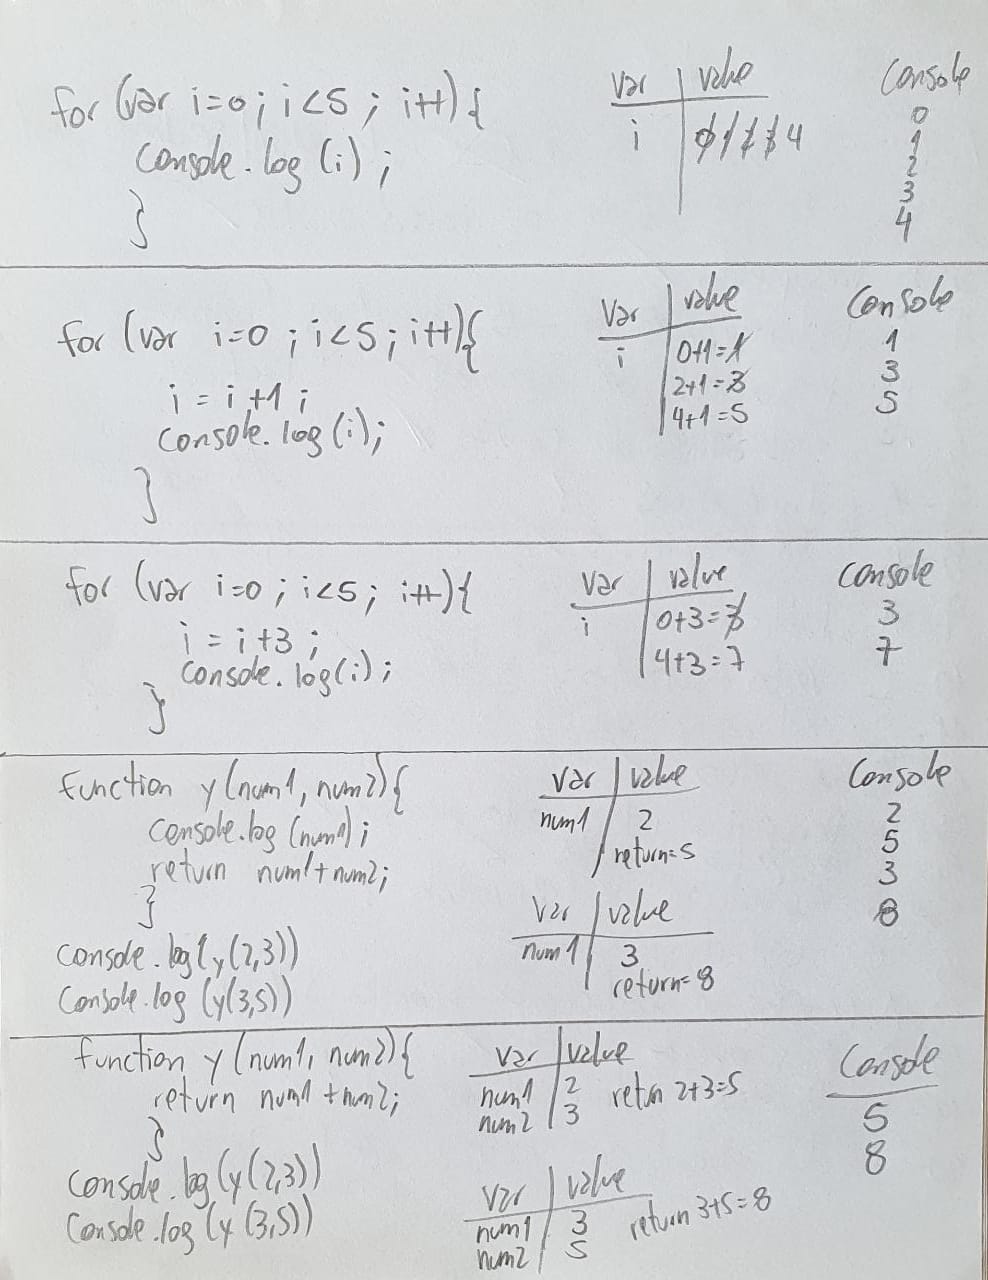 for (var i=0; i<5; i++){
console.log(i);
}
Var value
i 0 1 2 3 4
Console
0
1
2
3
4
for (var i=0; i<5; i++){
i = i+1;
console.log(i);
}
Var value
i 0+1=1
2+1=3
4+1=5
Console
1
3
5
for (var i=0; i<5; i++){
i = i+3;
console.log(i);
}
Var value
i 0+3=3
4+3=7
Console
3
7
function y(num1, num2){
console.log(num1);
return num1+num2;
}
console.log(y(2,3))
console.log(y(3,5))
Var value
num1 2
return=5
Var value
num1 3
return=8
Console
2
5
3
8
function y(num1, num2){
return num1+num2;
}
console.log(y(2,3))
console.log(y(3,5))
Var value
num1 2
num2 3
retun 2+3=5
Var value
num1 3
num2 5
return 3+5=8
Console
5
8